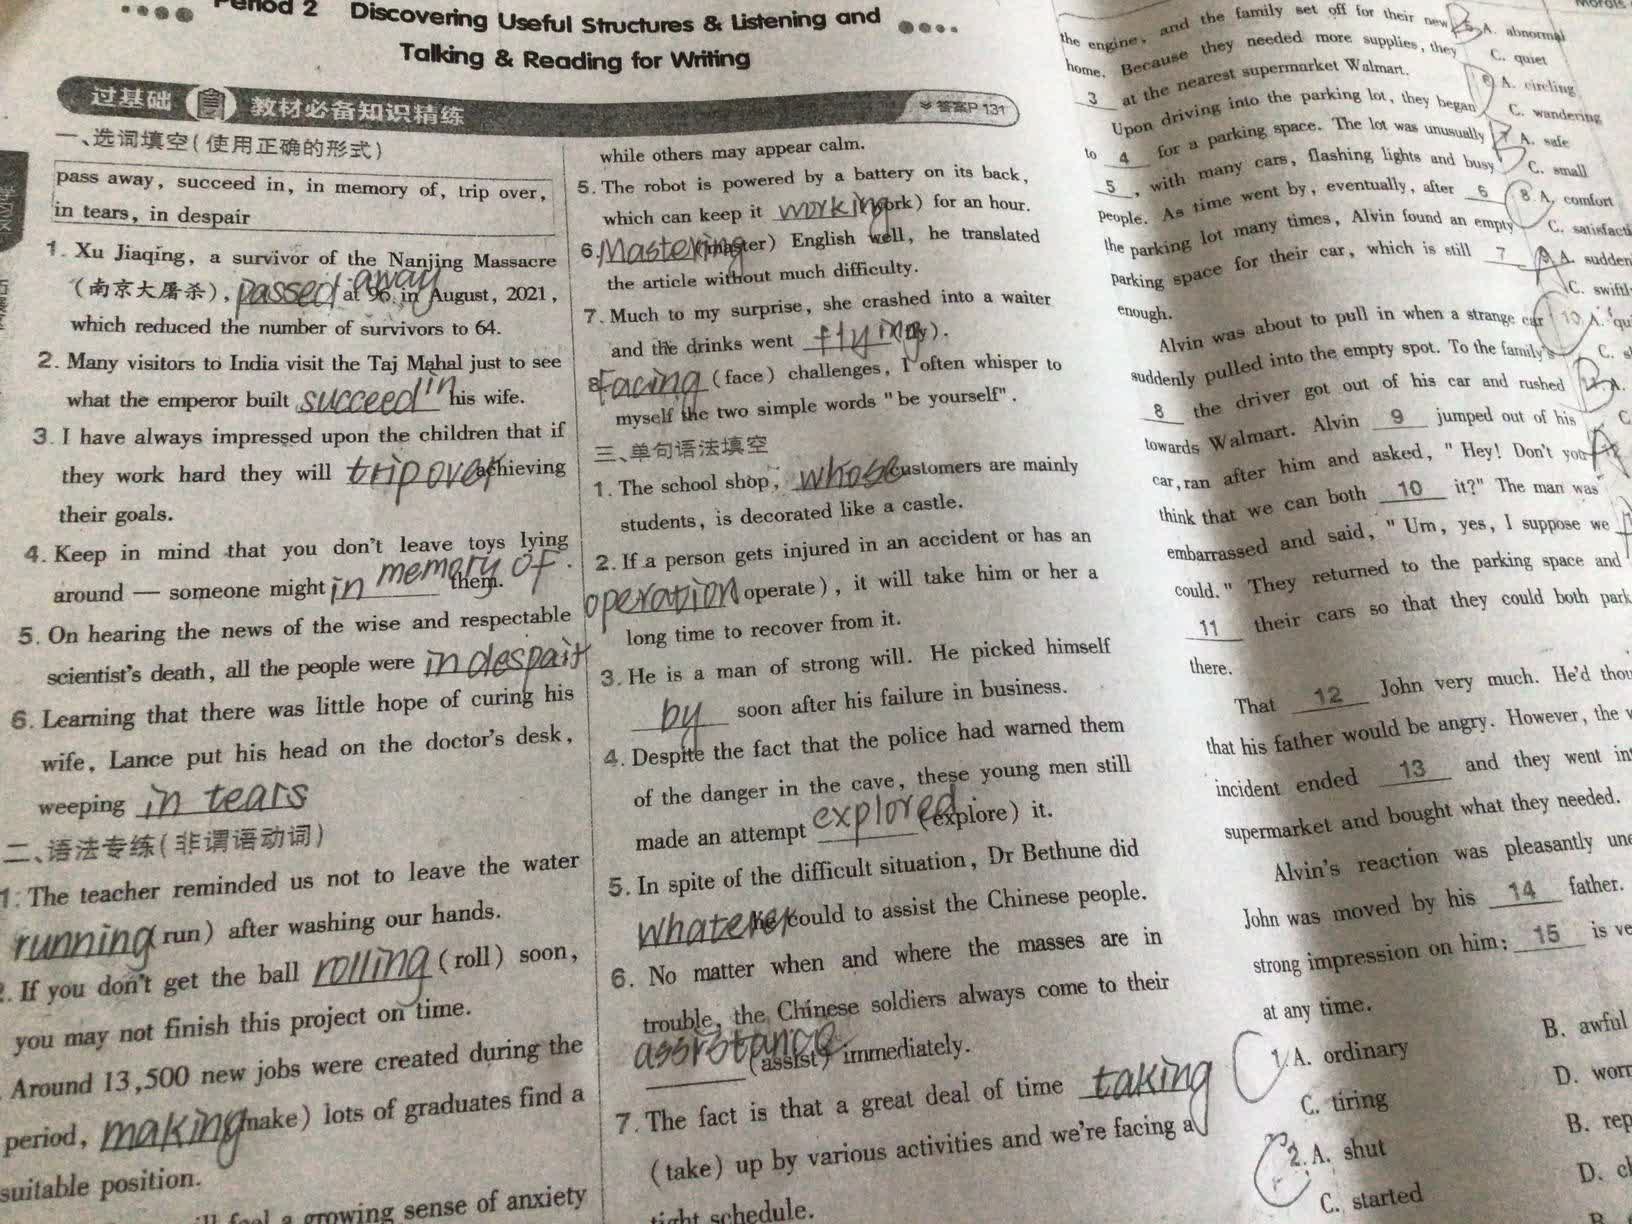 Period 2 Discovering Useful Structures & Listening and
Talking & Reading for Writing
过基础 教材必备知识精练 答案P 131
一、选词填空(使用正确的形式)
pass away, succeed in, in memory of, trip over,
in tears, in despair
1. Xu Jiaqing, a survivor of the Nanjing Massacre
(南京大屠杀), passed away at 96 in August, 2021,
which reduced the number of survivors to 64.
2. Many visitors to India visit the Taj Mahal just to see
what the emperor built succeed in his wife.
3. I have always impressed upon the children that if
they work hard they will trip over achieving
their goals.
4. Keep in mind that you don't leave toys lying
around — someone might in memory of them.
5. On hearing the news of the wise and respectable
scientist's death, all the people were in despair
6. Learning that there was little hope of curing his
wife, Lance put his head on the doctor's desk,
weeping in tears
二、语法专练(非谓语动词)
1. The teacher reminded us not to leave the water
running (run) after washing our hands.
2. If you don't get the ball rolling (roll) soon,
you may not finish this project on time.
Around 13,500 new jobs were created during the
period, making (make) lots of graduates find a
suitable position.
feel a growing sense of anxiety
while others may appear calm.
5. The robot is powered by a battery on its back,
which can keep it working (work) for an hour.
6. Mastering (master) English well, he translated
the article without much difficulty.
7. Much to my surprise, she crashed into a waiter
and the drinks went flying (fly).
8. Facing (face) challenges, I often whisper to
myself the two simple words "be yourself".
三、单句语法填空
1. The school shop, whose customers are mainly
students, is decorated like a castle.
2. If a person gets injured in an accident or has an
operation (operate), it will take him or her a
long time to recover from it.
3. He is a man of strong will. He picked himself
by soon after his failure in business.
4. Despite the fact that the police had warned them
of the danger in the cave, these young men still
made an attempt explored (explore) it.
5. In spite of the difficult situation, Dr Bethune did
whatever he could to assist the Chinese people.
6. No matter when and where the masses are in
trouble, the Chinese soldiers always come to their
assistance (assist) immediately.
7. The fact is that a great deal of time taking
(take) up by various activities and we're facing a
tight schedule.
the engine, and the family set off for their new
home. Because they needed more supplies, they
3 at the nearest supermarket Walmart.
Upon driving into the parking lot, they began
to 4 for a parking space. The lot was unusually
5, with many cars, flashing lights and busy
people. As time went by, eventually, after 6
the parking lot many times, Alvin found an empty
parking space for their car, which is still 7
enough.
Alvin was about to pull in when a strange car
suddenly pulled into the empty spot. To the family's
8 the driver got out of his car and rushed
towards Walmart. Alvin 9 jumped out of his
car, ran after him and asked, "Hey! Don't you
think that we can both 10 it?" The man was
embarrassed and said, "Um, yes, I suppose we
could." They returned to the parking space and
11 their cars so that they could both park
there.
That 12 John very much. He'd
that his father would be angry. However, the
incident ended 13 and they went
supermarket and bought what they needed.
Alvin's reaction was pleasantly
John was moved by his 14 father.
strong impression on him: 15 is
at any time.
1. A. ordinary
B. awful
C. tiring
D.
2. A. shut
B.
C. started
D.
B.
A. abnormal
C. quiet
6 A. circling
C. wandering
7 A. safe
C. small
8. A. comfort
C.
9 A.
C.
10 A.
C.
A.
C.